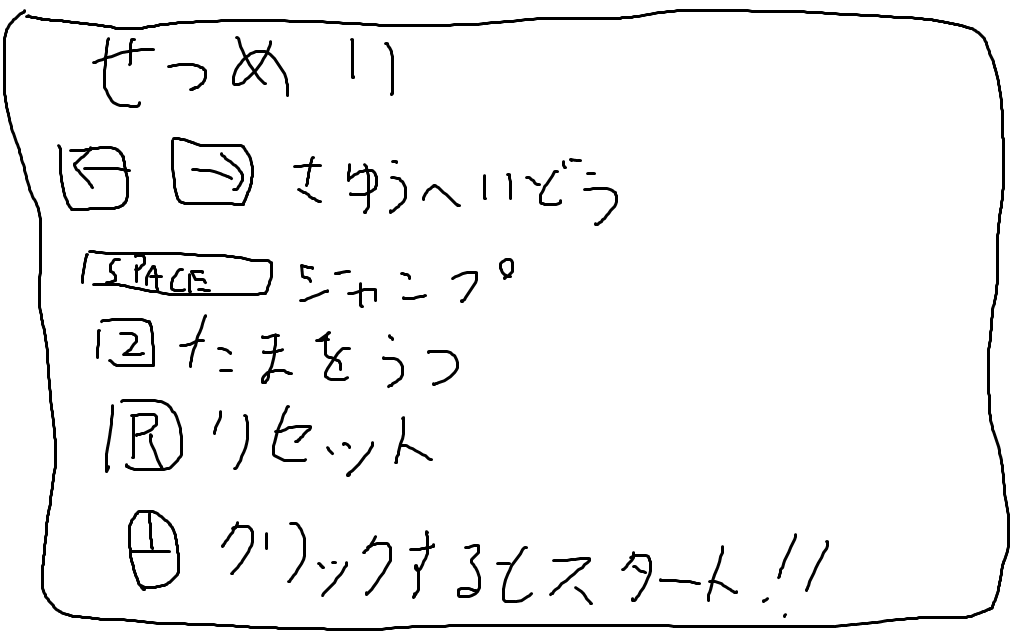 せつめい
← → さゆうへいどう
SPACE ジャンプ
2 たまをうつ
R リセット
クリックするとスタート!!